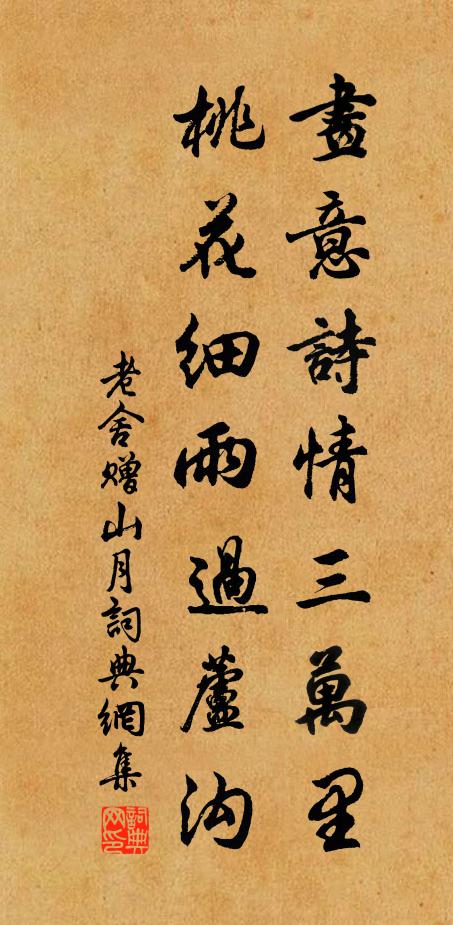 畫意詩情三萬里
桃花細雨過蘆溝
老舍赠山月詞典網集
詞典网印